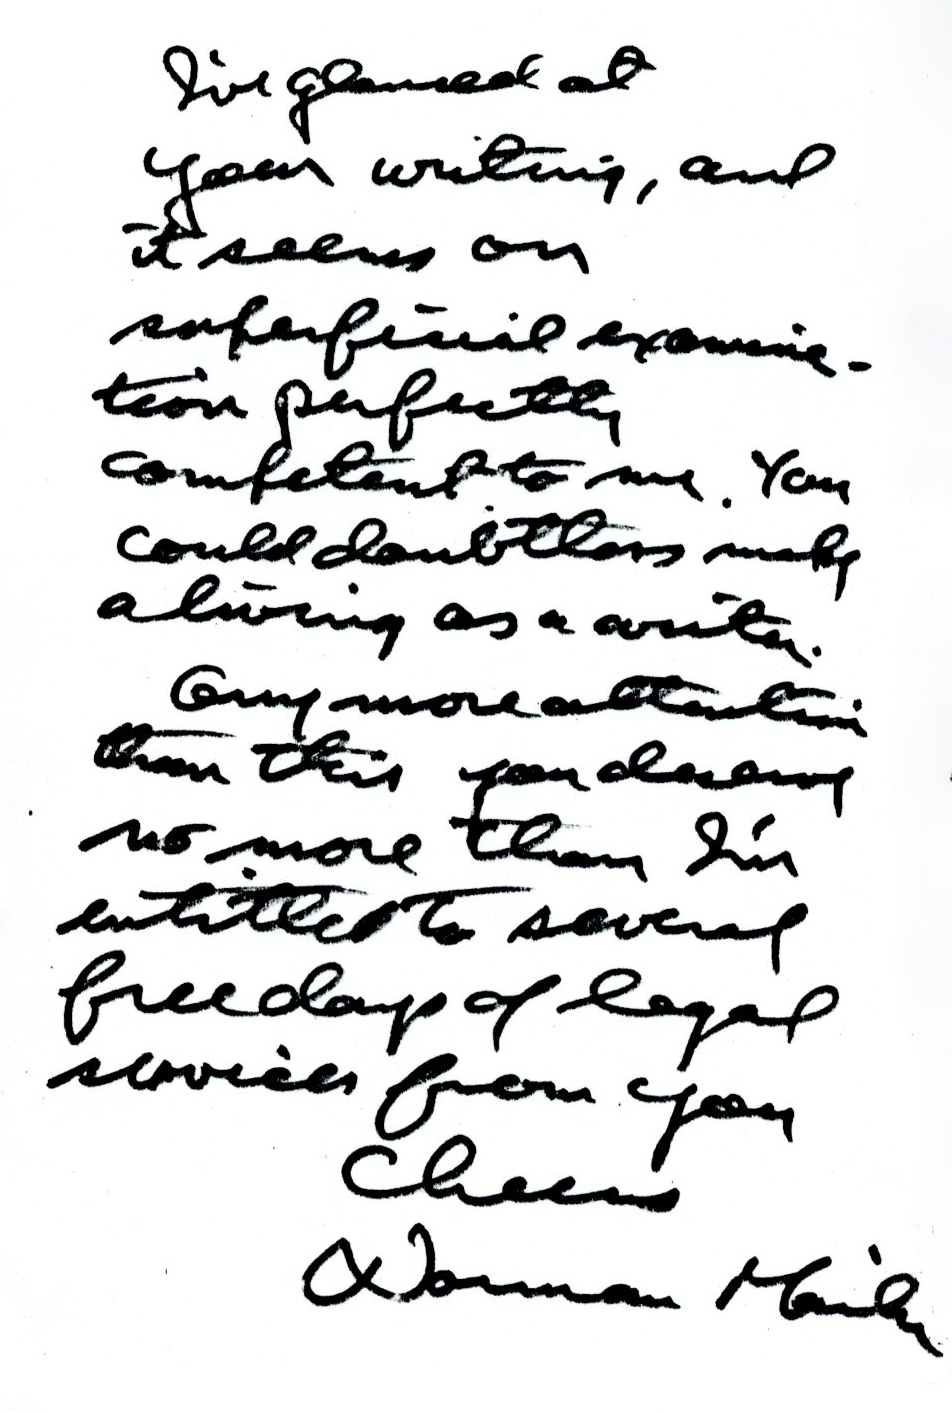 I've glanced at
your writing, and
it seems on
superficial examina-
tion perfectly
competent to me. You
could doubtless make
a living as a writer.
Any more attention
than this you deserve
no more than I'm
entitled to several
free days of legal
services from you
Cheers
Norman Mailer